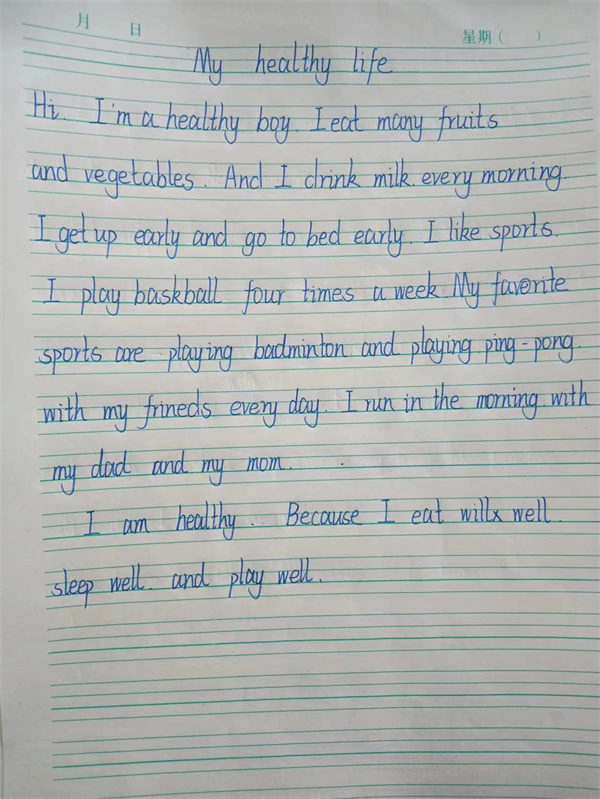 月 日 星期( )
My healthy life
Hi. I'm a healthy boy. I eat many fruits
and vegetables. And I drink milk every morning.
I get up early and go to bed early. I like sports.
I play baskball four times a week. My faverite
sports are playing badminton and playing ping-pong
with my frineds every day. I run in the morning with
my dad and my mom.
I am healthy. Because I eat willx well.
sleep well. and play well.